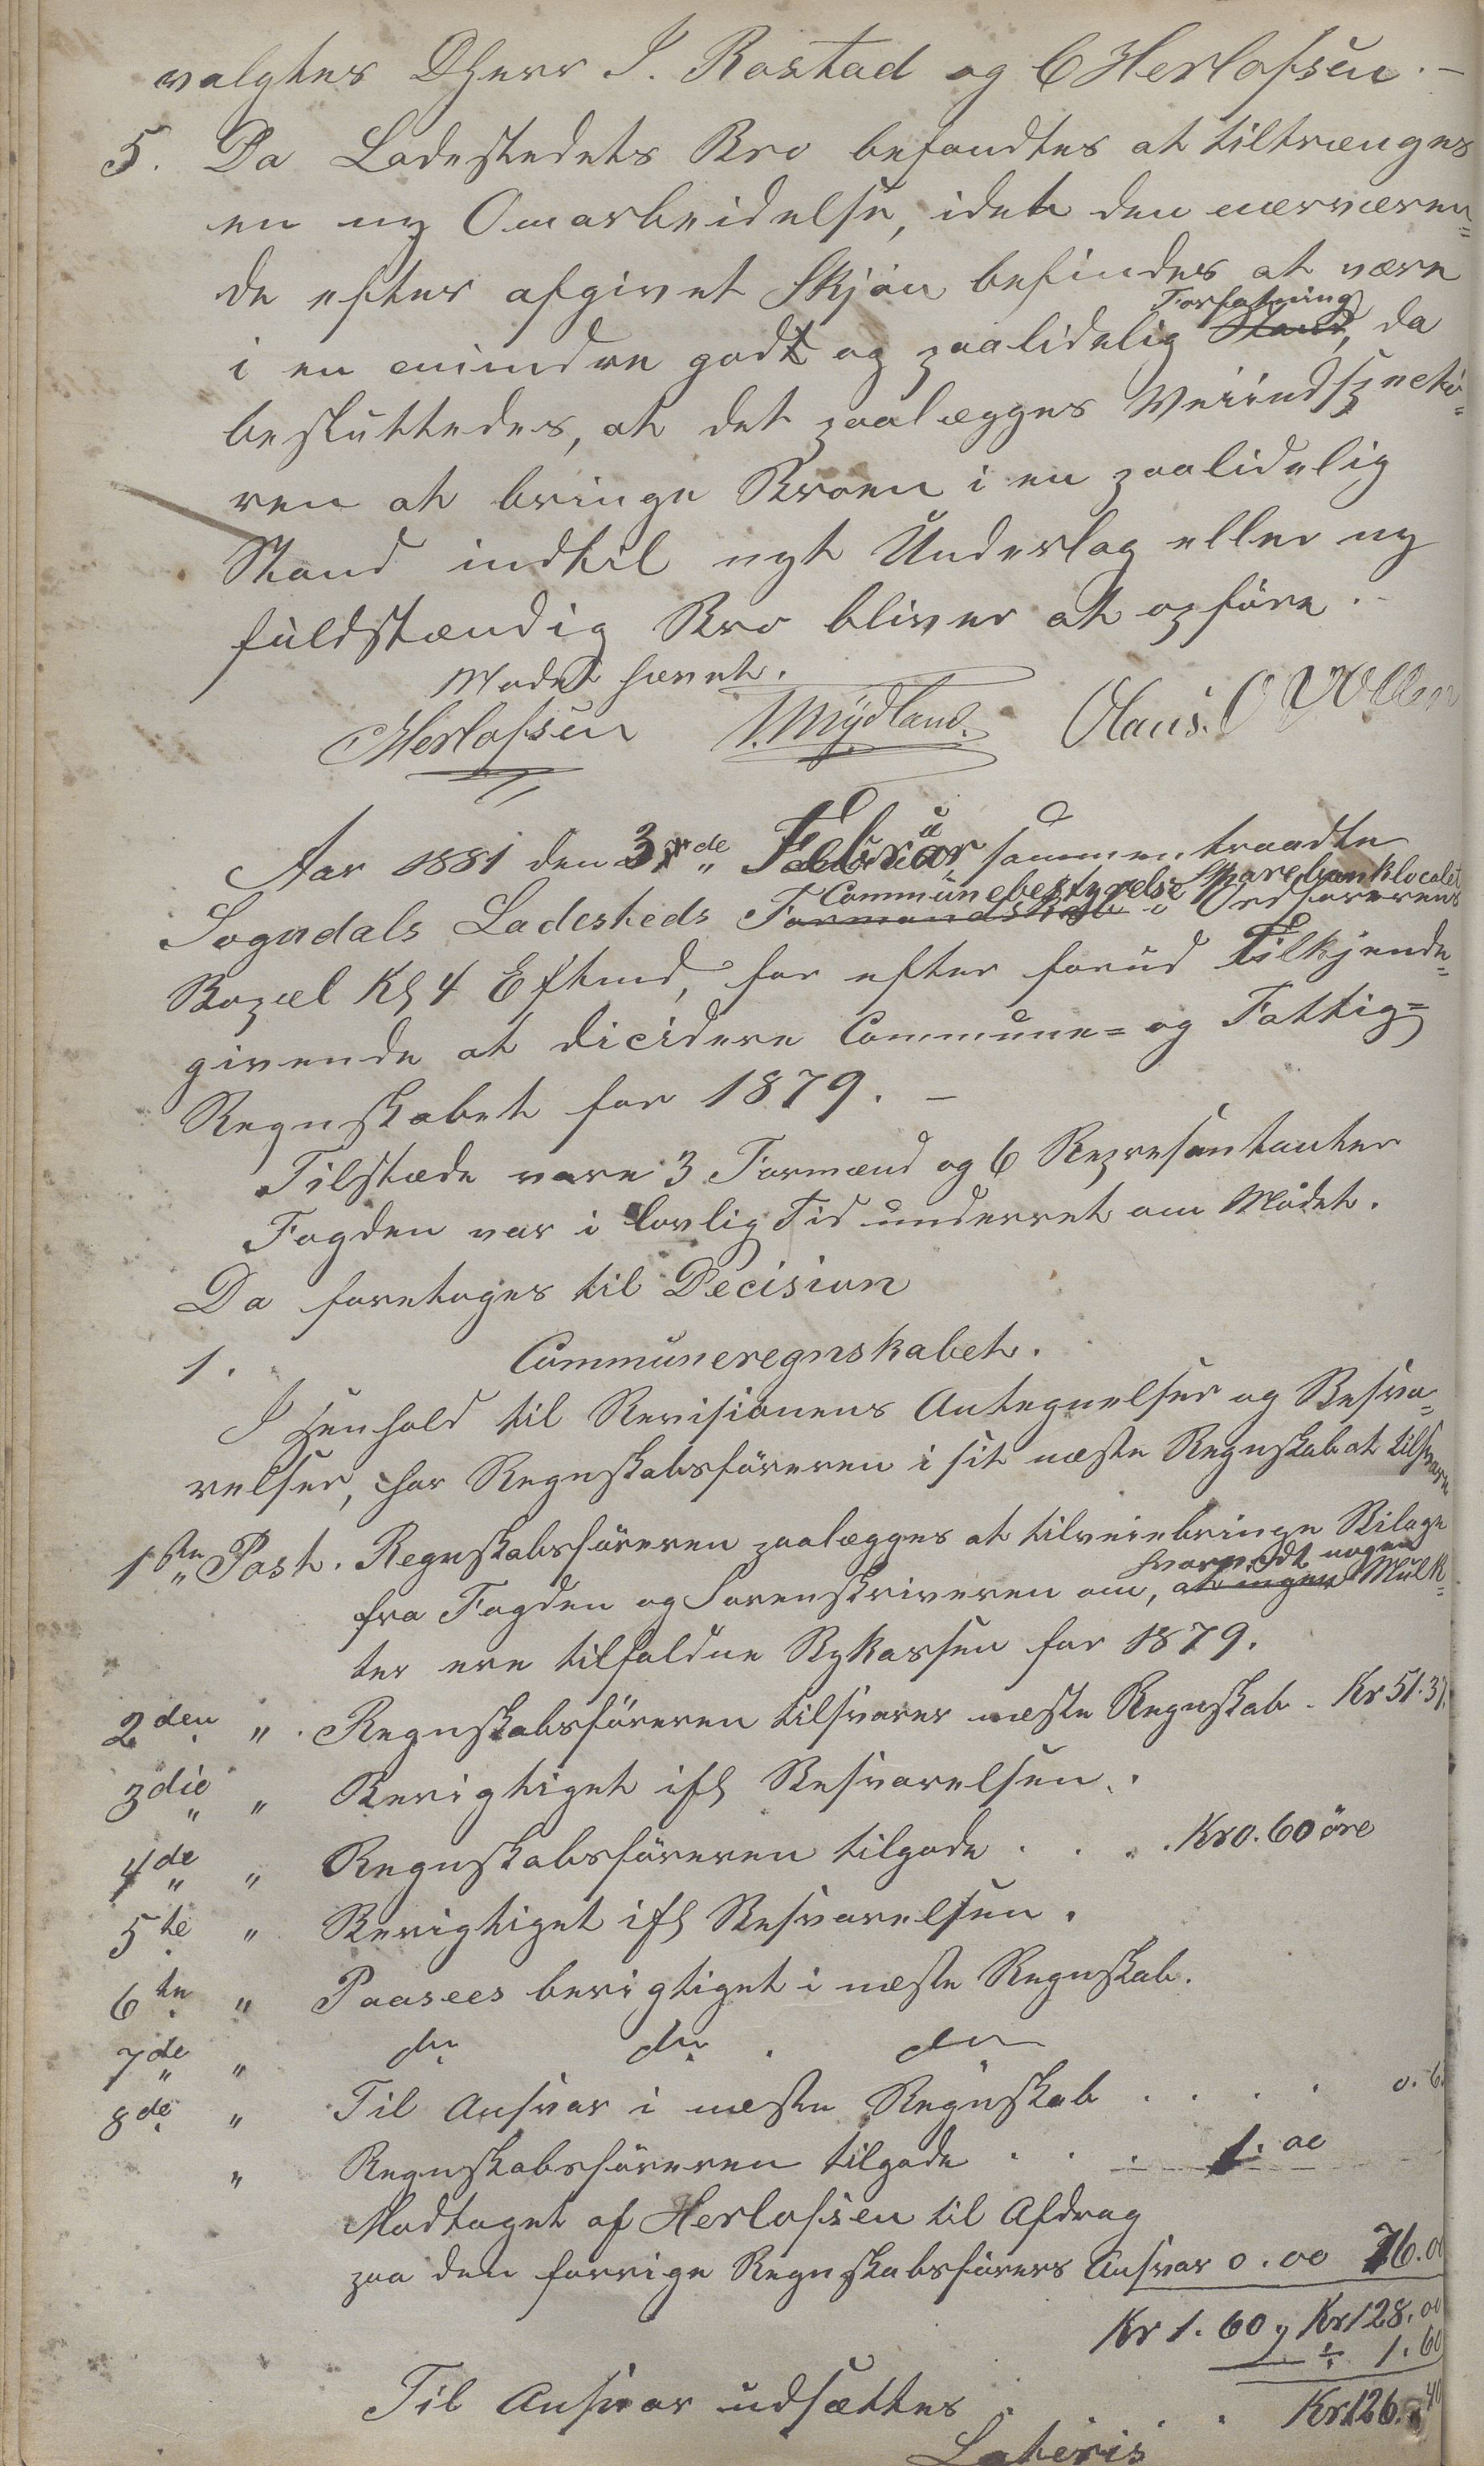 valgtes DHerr J. Rostad og C Herlofsen. –
5. Da Ladestedets Bro befandtes at tiltrænges
en ny Omarbeidelse, idet den nærværen=
de efter afgivet Skjøn befindes at være
i en mindre godt og paalidelig Stand, Forfatning da
besluttedes, at det paalægges Veiindspektø=
ren at bringe Broen i en paalidelig
Stand indtil nyt Underlag eller ny
fuldstændig Bro bliver at opføre. –
Mødet hævet.
CHerlofsen T. Mydland. Olaus. O
Aar 1881 den 3de Februar sammentraadte
Sogndals Ladesteds Formandskab Communebestyrelse i Ordførerens Sparebanklocalet
Bopæl Kl 4 Eftmd, for efter forud Tilkjende=
givende at dicidere Commune= og Fattig=
Regnskabet for 1879. –
Tilstæde vare 3 Formænd og 6 Representanter
Fogden var i lovlig Tid underret om Mødet.
Da foretoges til Decision
1. Communeregnskabet.
I Henhold til Revisionens Antegnelser og Besva=
relser, har Regnskabsføreren i sit næste Regnskab at tilsvare
1ste Post. Regnskabsføreren paalægges at tilveiebringe Bilage
fra Fogden og Sorenskriveren om, at ingen hvorvidt nogen Mulk=
ter ere tilfaldne Bykassen for 1879.
2den " . Regnskabsføreren tilsvarer næste Regnskab . Kr 51.37.
3die " Berigtiget ifl Besvarelsen.
4de " Regnskabsføreren tilgode . . . . Kr 0.60 öre
5te " Berigtiget ifl Besvarelsen.
6te " Paasees berigtiget i næste Regnskab.
7de " do do . do
8de " Til Ansvar i næste Regnskab . . . . 0. 6
" Regnskabsføreren tilgode . . . 1.00
Modtaget af Herlofsen til Afdrag
paa den forrige Regnskabsførers Ansvar 0.00 76.00
Kr 1.60, Kr 128.00
÷ 1.60
Til Ansvar udsættes . . . . Kr 126.40
Lateris